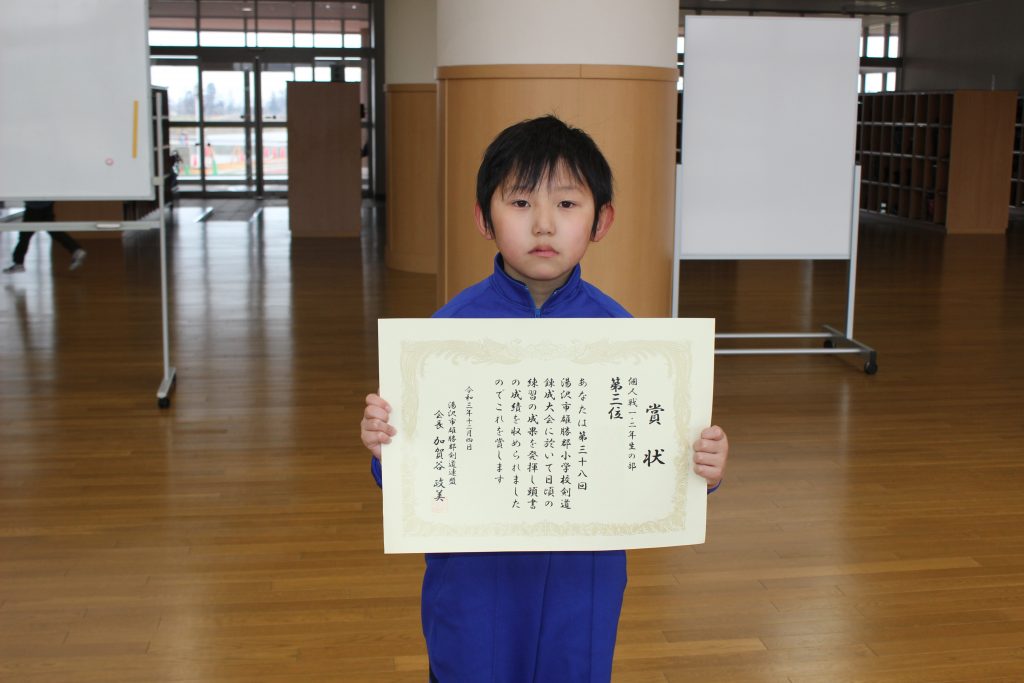 賞状
個人戦一・二年生の部
第三位
あなたは第三十八回
湯沢市雄勝郡小学校剣道
錬成大会に於いて日頃の
練習の成果を発揮し頭書
の成績を収められました
のでこれを賞します
令和三年十二月四日
湯沢市雄勝郡剣道連盟
会長 加賀谷 政美